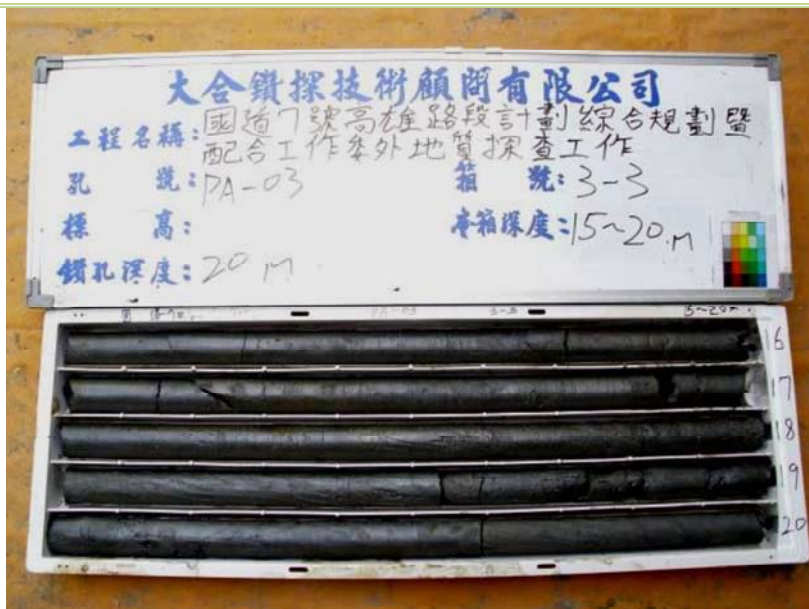 大合鑽探技術顧問有限公司
工程名稱:國道7號高雄路段計劃綜合規劃暨
配合工作委外地質探查工作
孔 號:PA-03 箱 號:3-3
標 高: 本箱深度:15~20.M
鑽孔深度:20 M
PA-03 3-3 15~20m
16
17
18
19
20